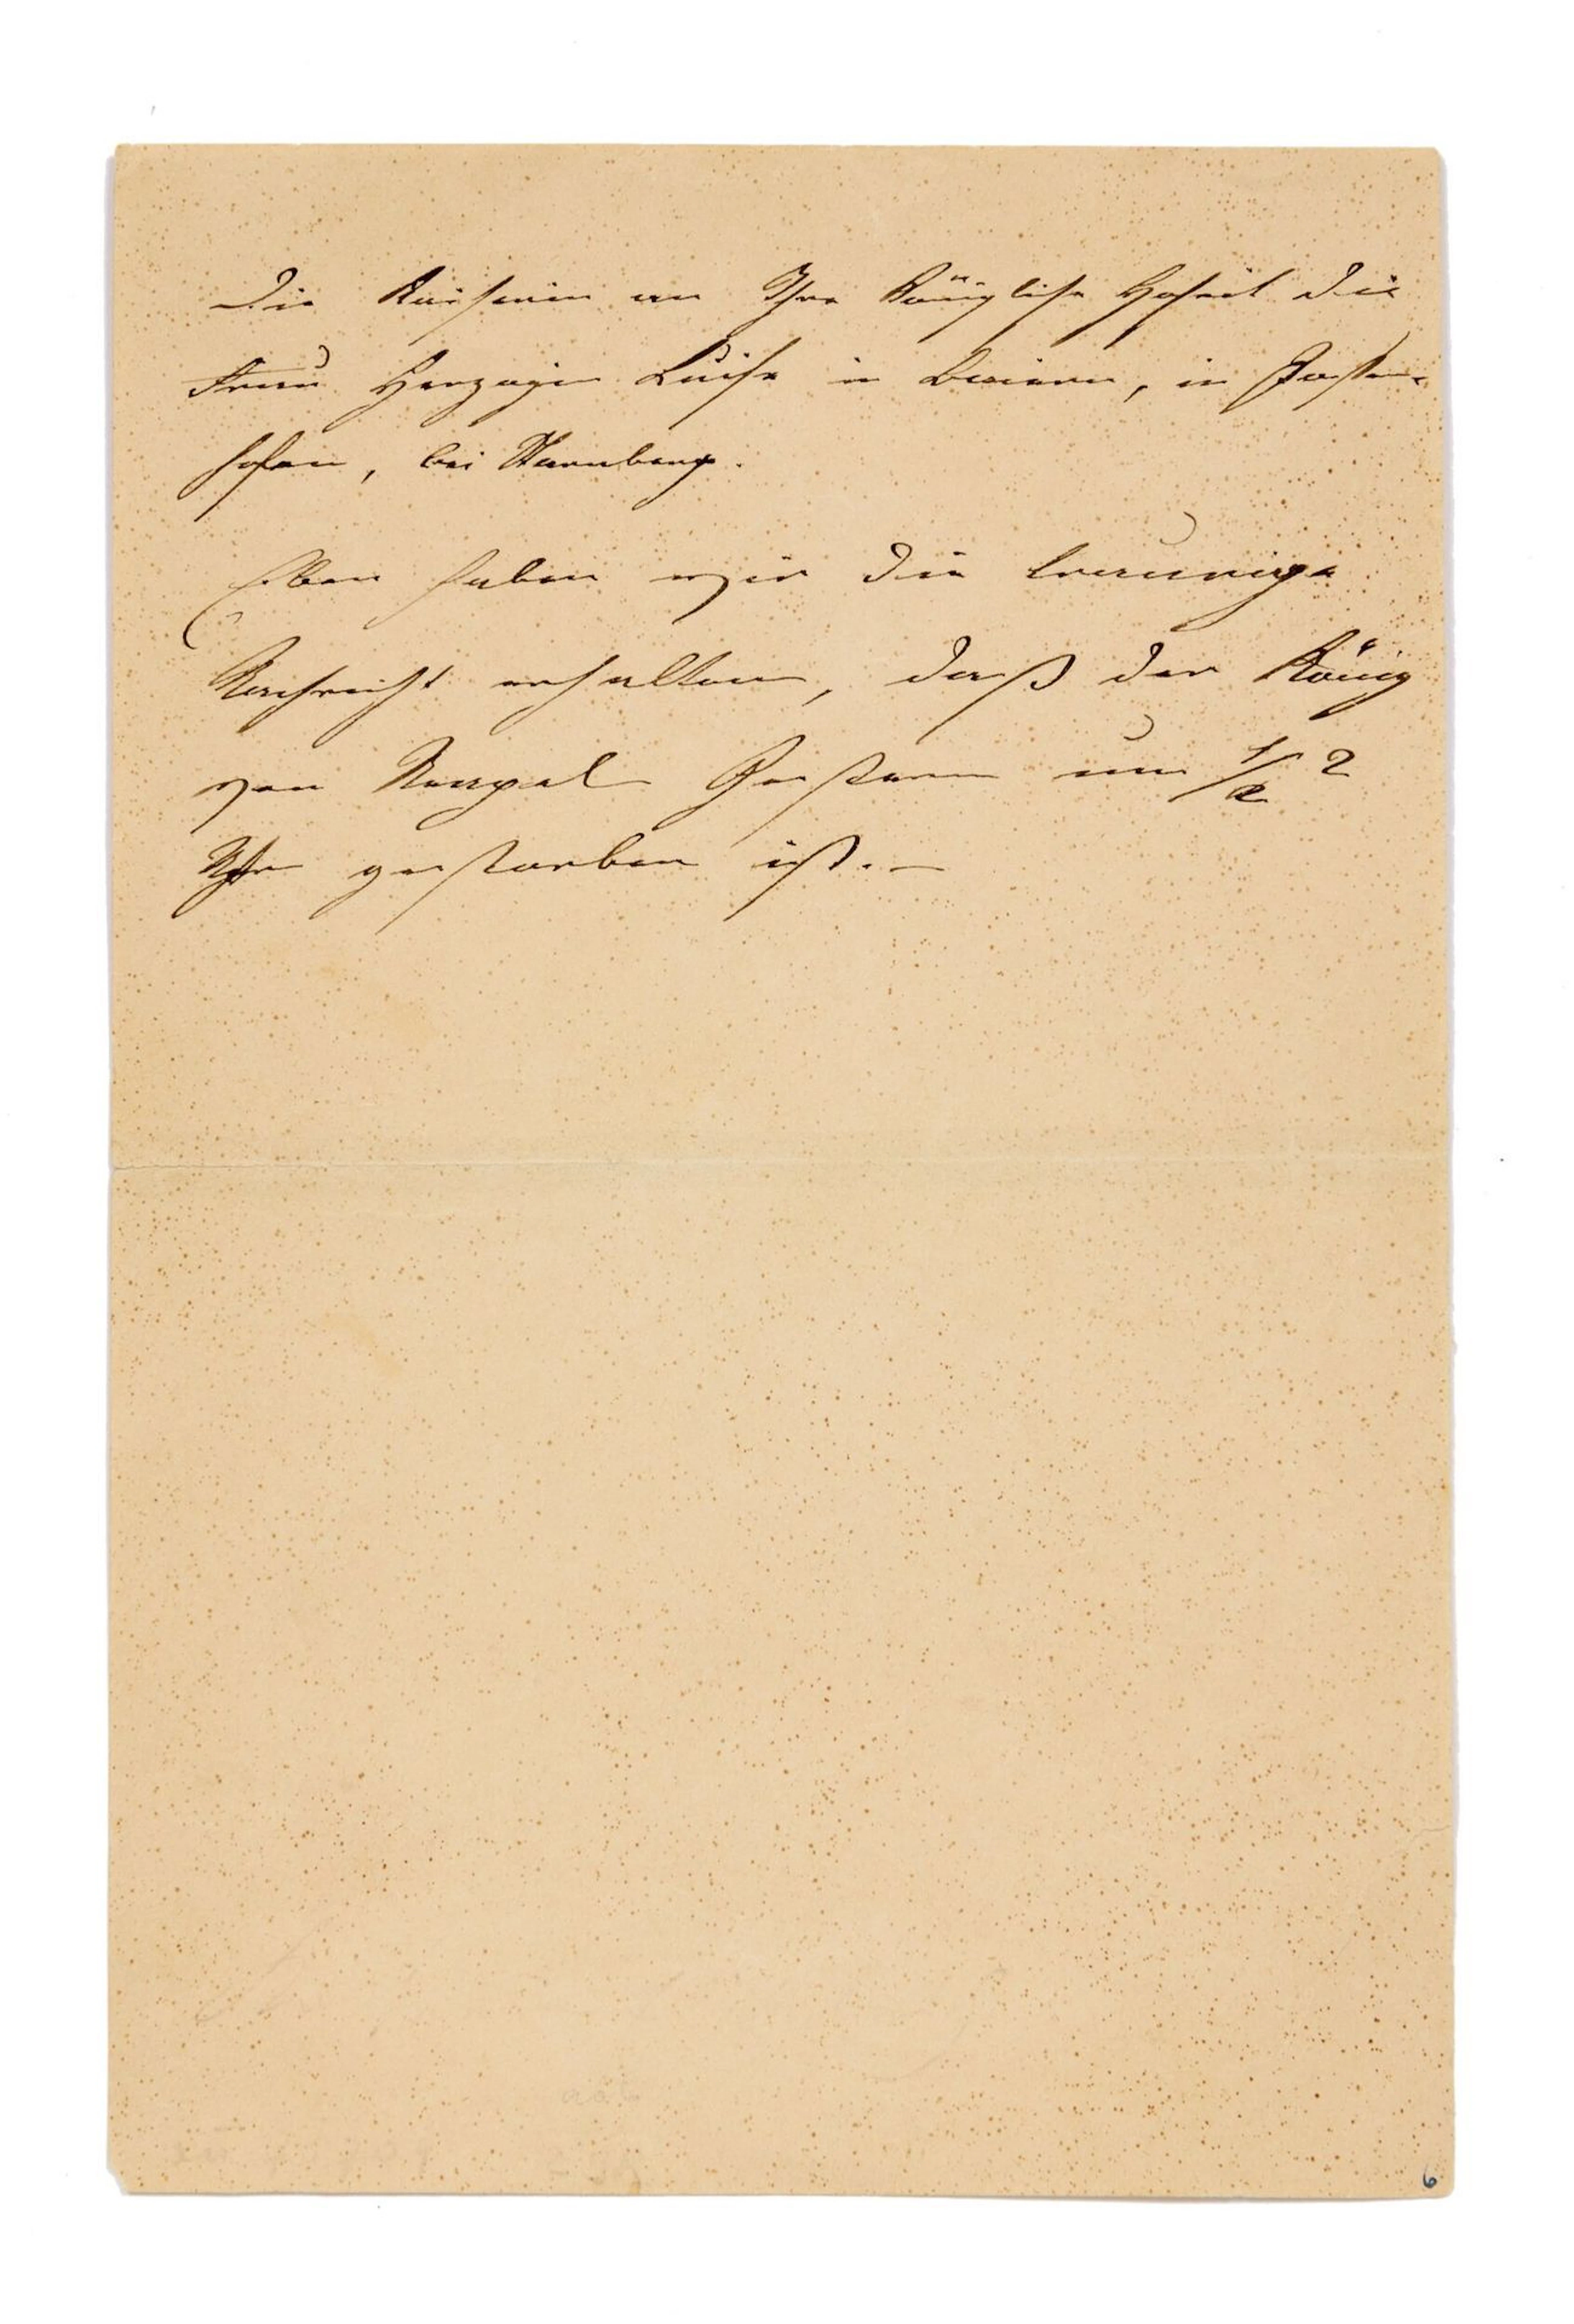 Die Kaiserin an Ihre Königliche Hoheit die
Frau Herzogin Luise in Baiern, in Possen-
hofen, bei Starnberg.
Eben haben wir die traurige
Nachricht erhalten, daß der König
von Neapel Gestern um 1/2 2
Uhr gestorben ist.—
6